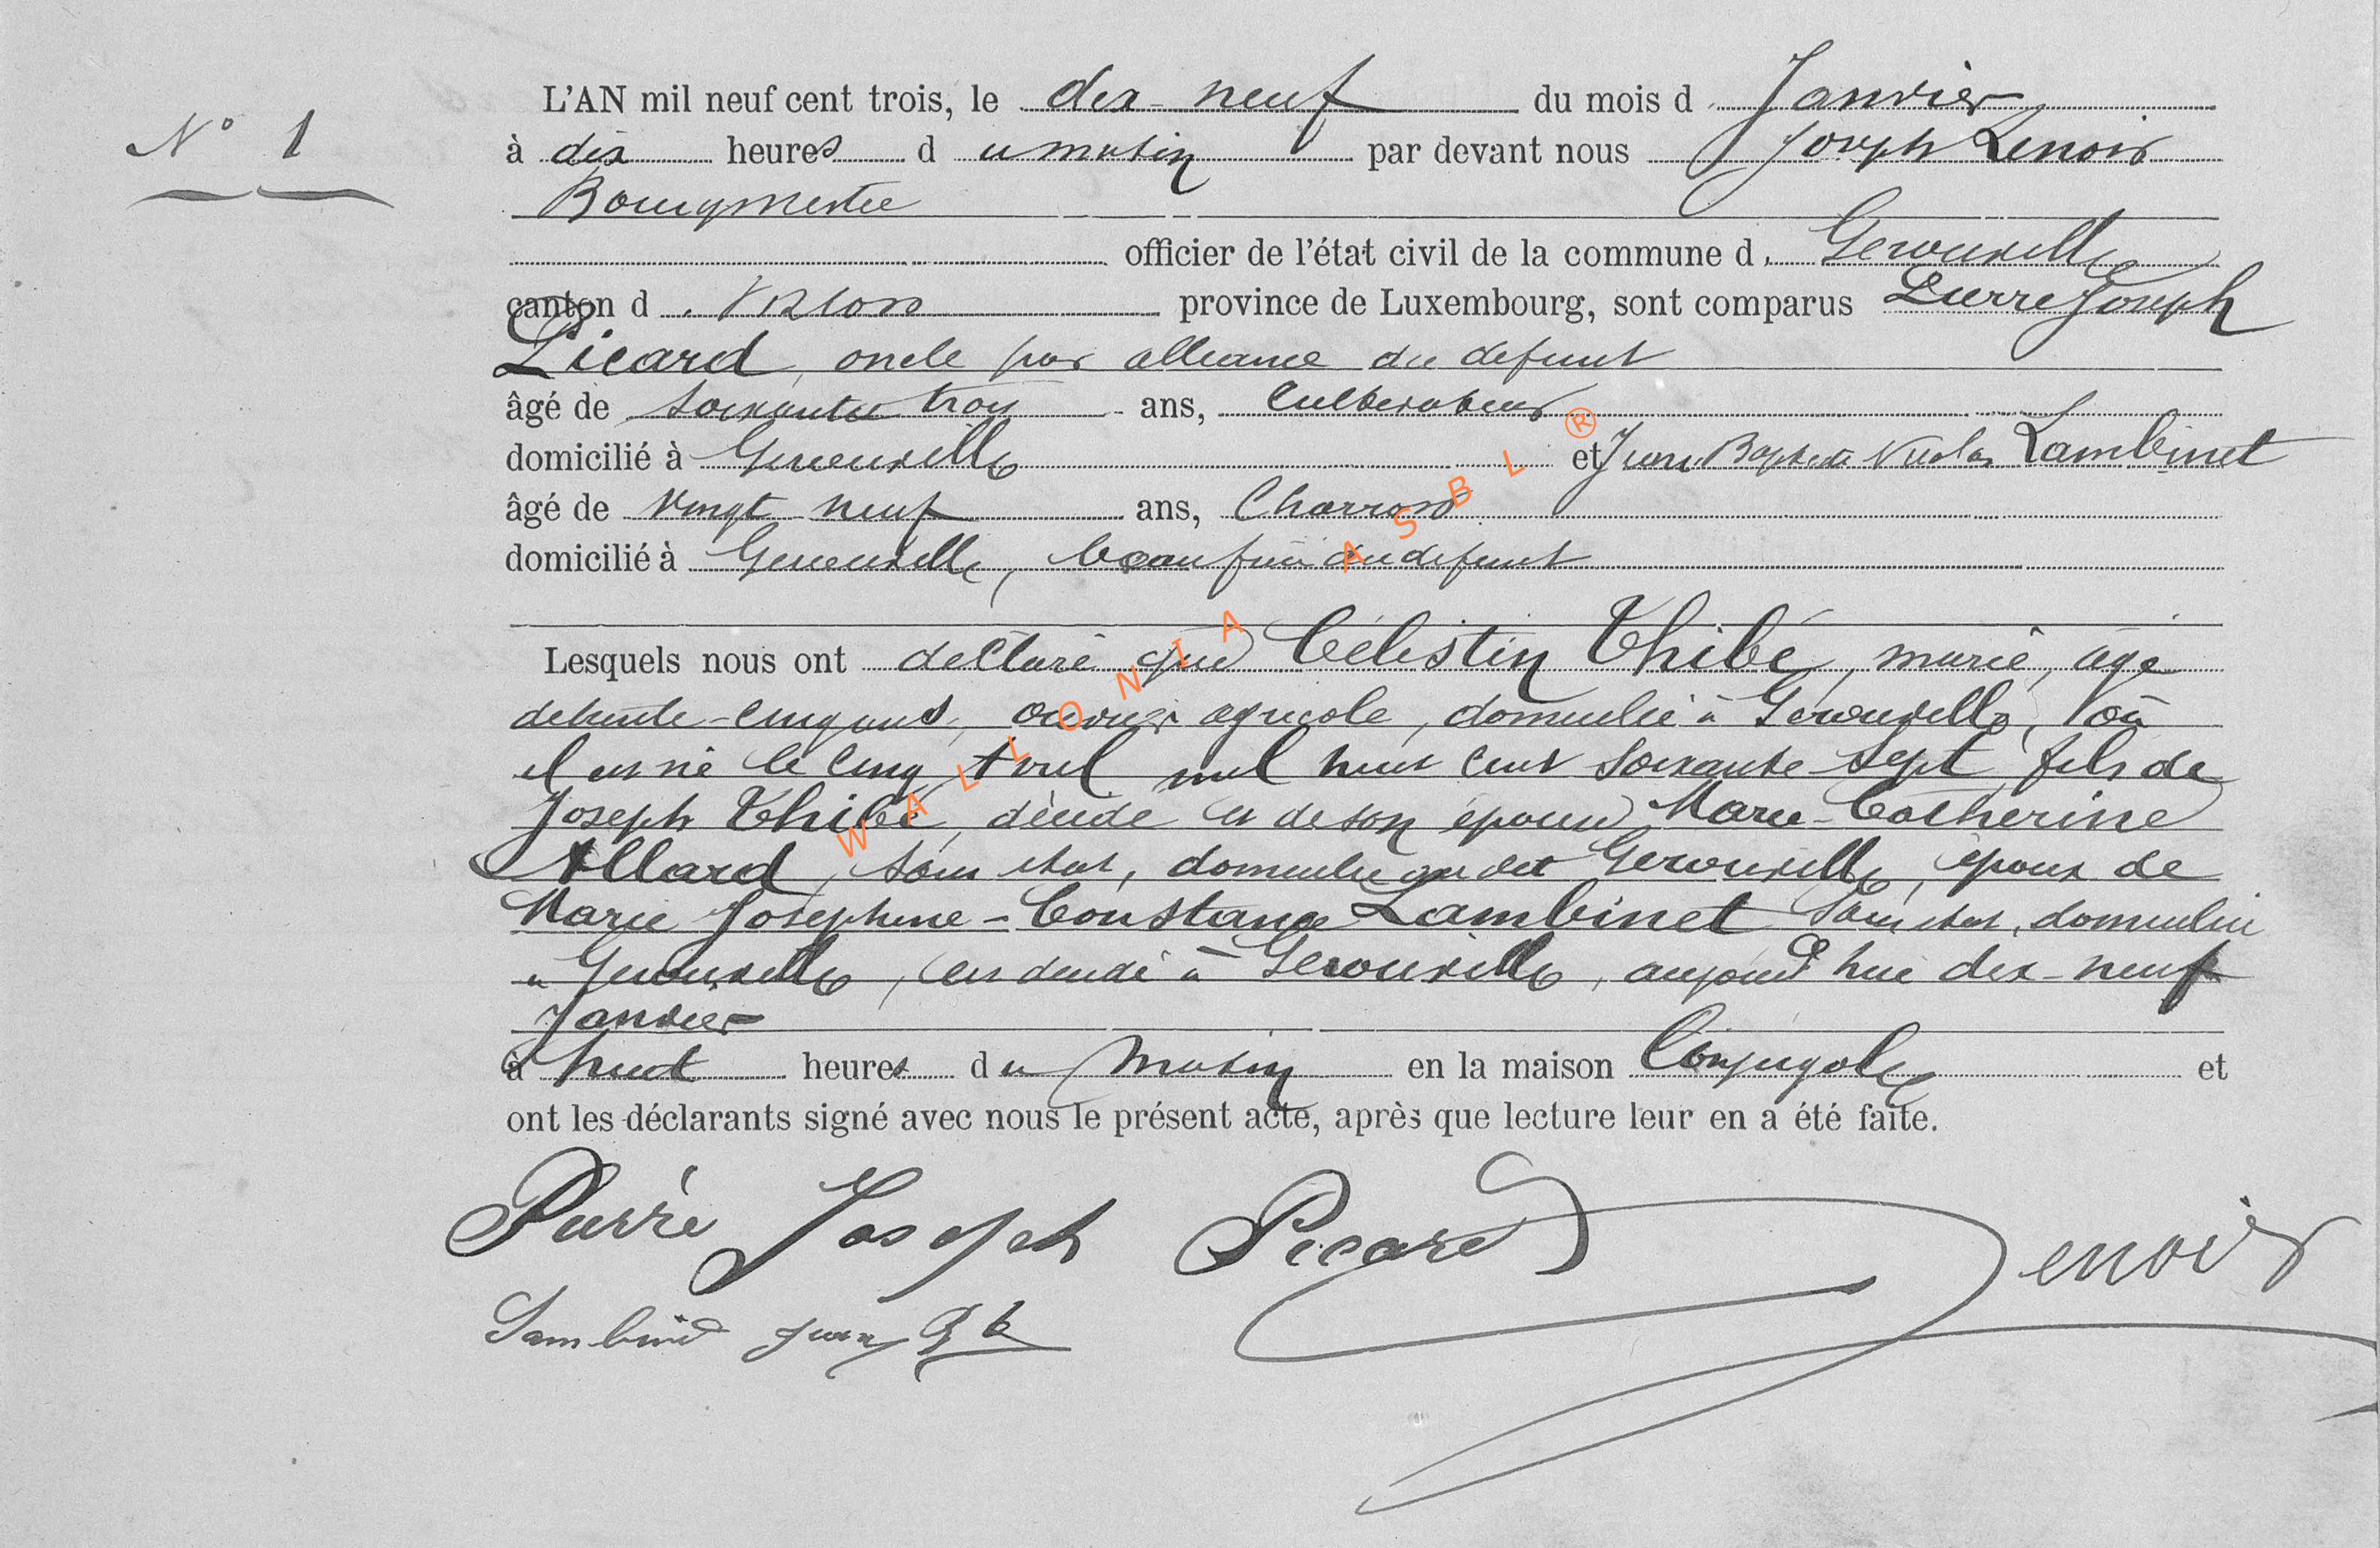 N° 1
L'AN mil neuf cent trois, le dix-neuf du mois d Janvier
à dix heures d u matin par devant nous Joseph Lenoir
Bourgmestre
officier de l'état civil de la commune d Gerouville
canton d Virton province de Luxembourg, sont comparus Pierre Joseph
Picard, oncle par alliance du defunt
âgé de soixante trois ans, Cultivateur
domicilié à Gerouville et Jean Baptiste Nicolas Lambinet
âgé de vingt neuf ans, Charron
domicilié à Gerouville, beau frère du defunt
Lesquels nous ont déclaré que Célestin Thibé, marié, agé
de trente-cinq ans, ouvrier agricole, domicilié à Gerouville, où
il est né le cinq Avril mil huit cent soixante-sept, fils de
Joseph Thibé, décédé et de son épouse Marie-Catherine
Allard, sans état, domiciliée au dit Gerouville, époux de
Marie Josephine-Constance Lambinet sans état, domiciliée
à Gerouville, est décédé à Gerouville, aujourd'hui dix-neuf
Janvier
à huit heures du matin en la maison Conjugale et
ont les déclarants signé avec nous le présent acte, après que lecture leur en a été faite.
Pierre Joseph Picard Lenoir
Lambinet Jean Bte
WALLONIA ASBL ®